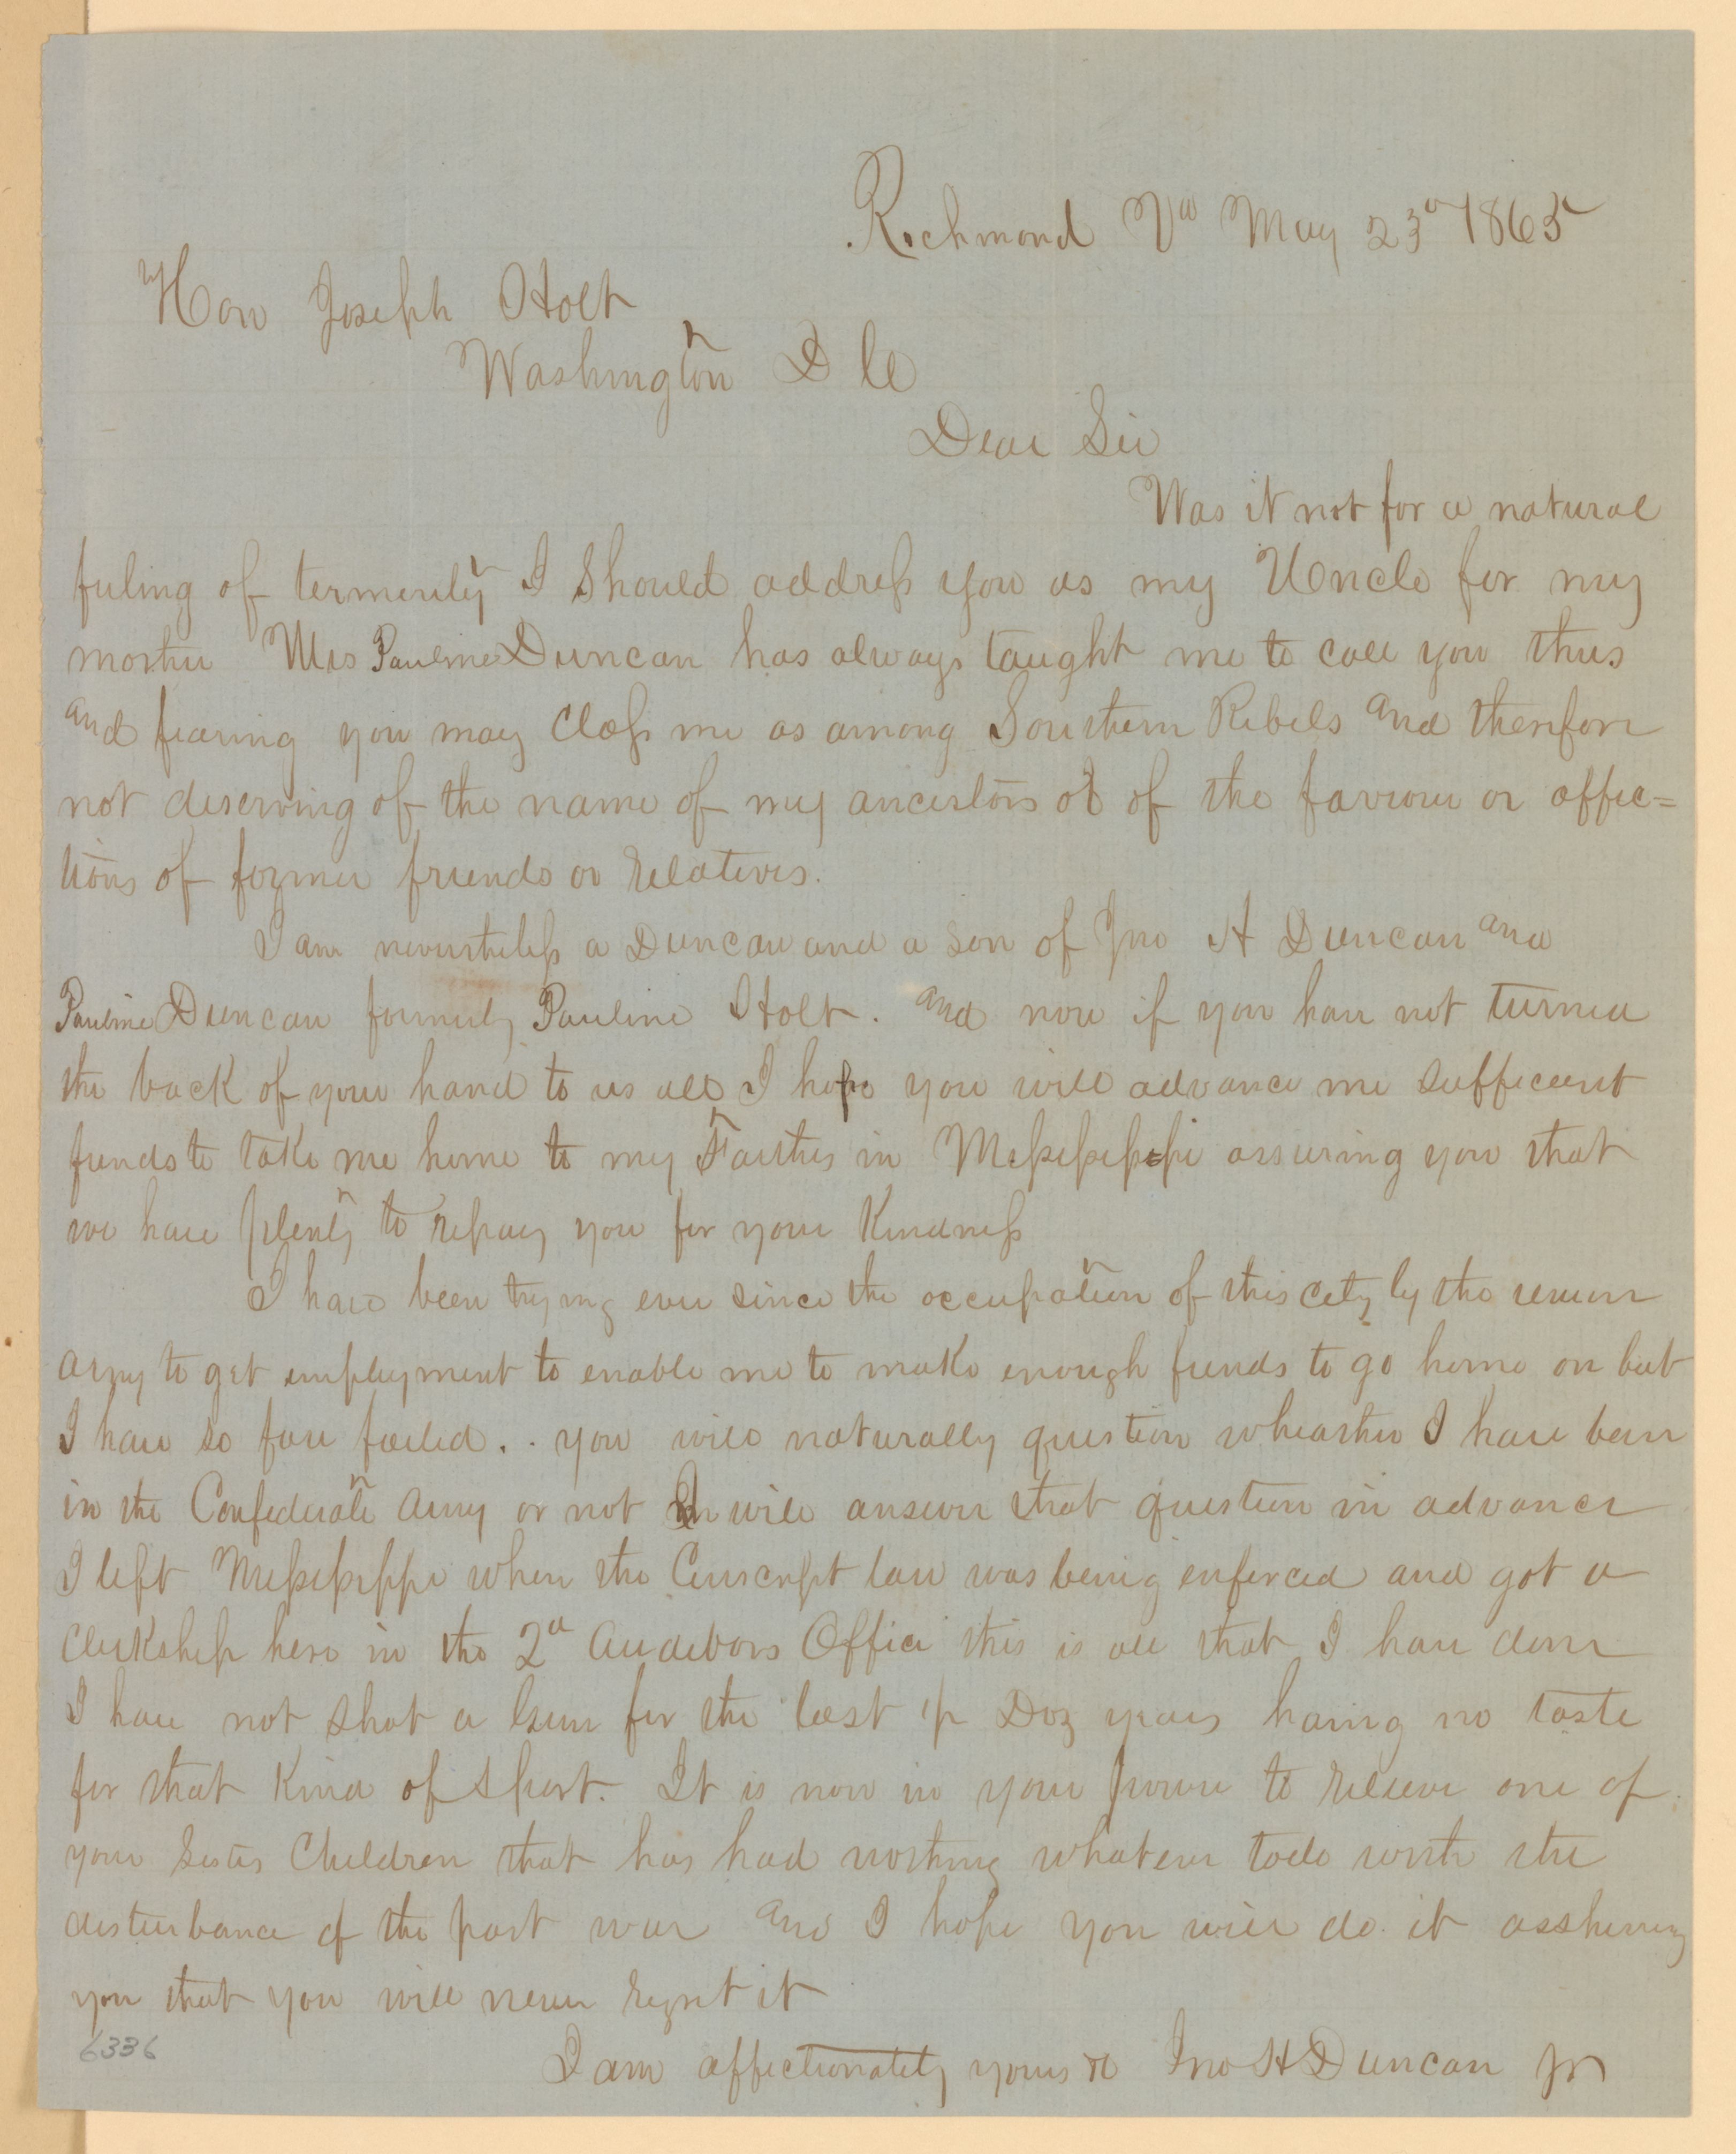 Richmond Va May 23d 1865
Hon Joseph Holt
Washington D C
Dear Sir
Was it not for a natural
feling of I should address you as my Uncle for my
mother Mrs Pauline Duncan has always taught me to call you thus
and fearing you may class me as among Southern Rebels and therefore
not deserving of the name of my ancestors or of the favour or affec=
tions of former friends or relatives.
I am nevertheless a Duncan and a son of Jno H Duncan and
Pauline Duncan formerly Pauline Holt. and now if you have not turned
the back of your hand to us all I hope you will advance me sufficient
funds to take me home to my Fathers in Mississippi assuring you that
we have plenty to repay you for your Kindness
I have been trying ever since the occupation of this city by the union
army to get employment to enable me to make enough funds to go home on but
I have so far failed.. you will naturally question wheather I have been
in the Confederate Army or not I will answer that question in advance
I left Mississippi when the Conscript law was being enforced and got a
Clerkship here in the 2d Auditors Office this is all that I have done
I have not shot a Gun for the last Doz years having no taste
for that Kind of Sport. It is now in your power to relieve one of
your Sisters Children that has had nothing whatever todo with the
disturbance of the past war and I hope you will do it asshuring
you that you will never regret it
6336
I am affectionately yours &c Jno H Duncan Jr